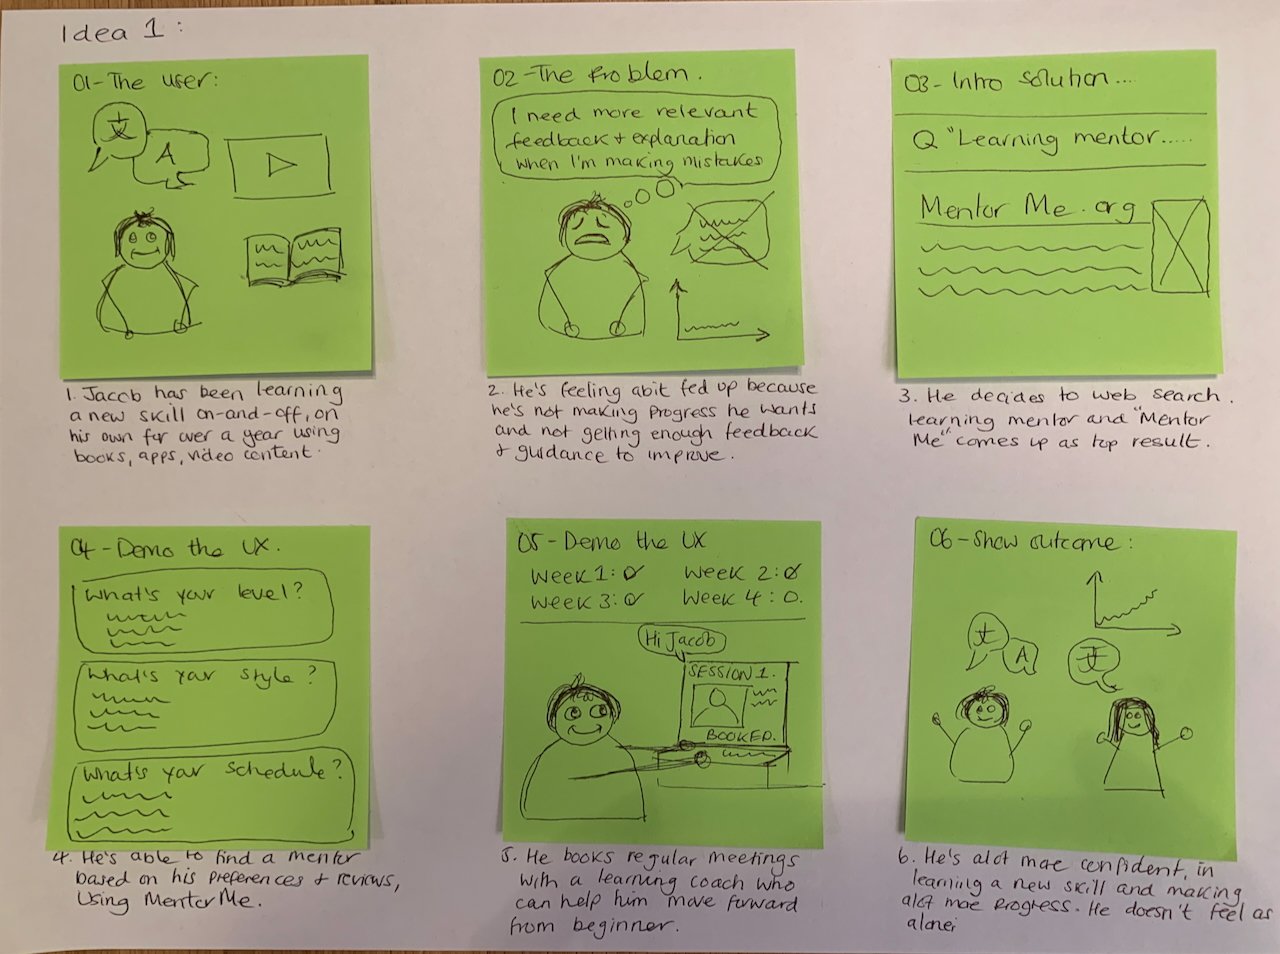 Idea 1 :
01-The user:
文
A
1. Jacob has been learning
a new skill on-and-off, on
his own for over a year using
books, apps, video content.
02-The Problem.
I need more relevant
feedback + explanation
when I'm making mistakes
2. He's feeling abit fed up because
he's not making progress he wants
and not getting enough feedback
+ guidance to improve.
03- Intro solution...
Q "Learning mentor.....
Mentor Me.org
3. He decides to web search.
learning mentor and "Mentor
Me" comes up as top result.
04-Demo the UX.
What's your level?
What's your style?
What's your schedule?
4. He's able to find a mentor
based on his preferences + reviews,
using MentorMe.
05-Demo the UX
Week 1: Week 2:
Week 3: Week 4: O.
Hi Jacob
SESSION 1.
BOOKED.
5. He books regular meetings
with a learning coach who
can help him move forward
from beginner.
06-Show outcome:
文
A
文
6. He's alot more confident, in
learning a new skill and making
alot more progress. He doesn't feel as
alone.